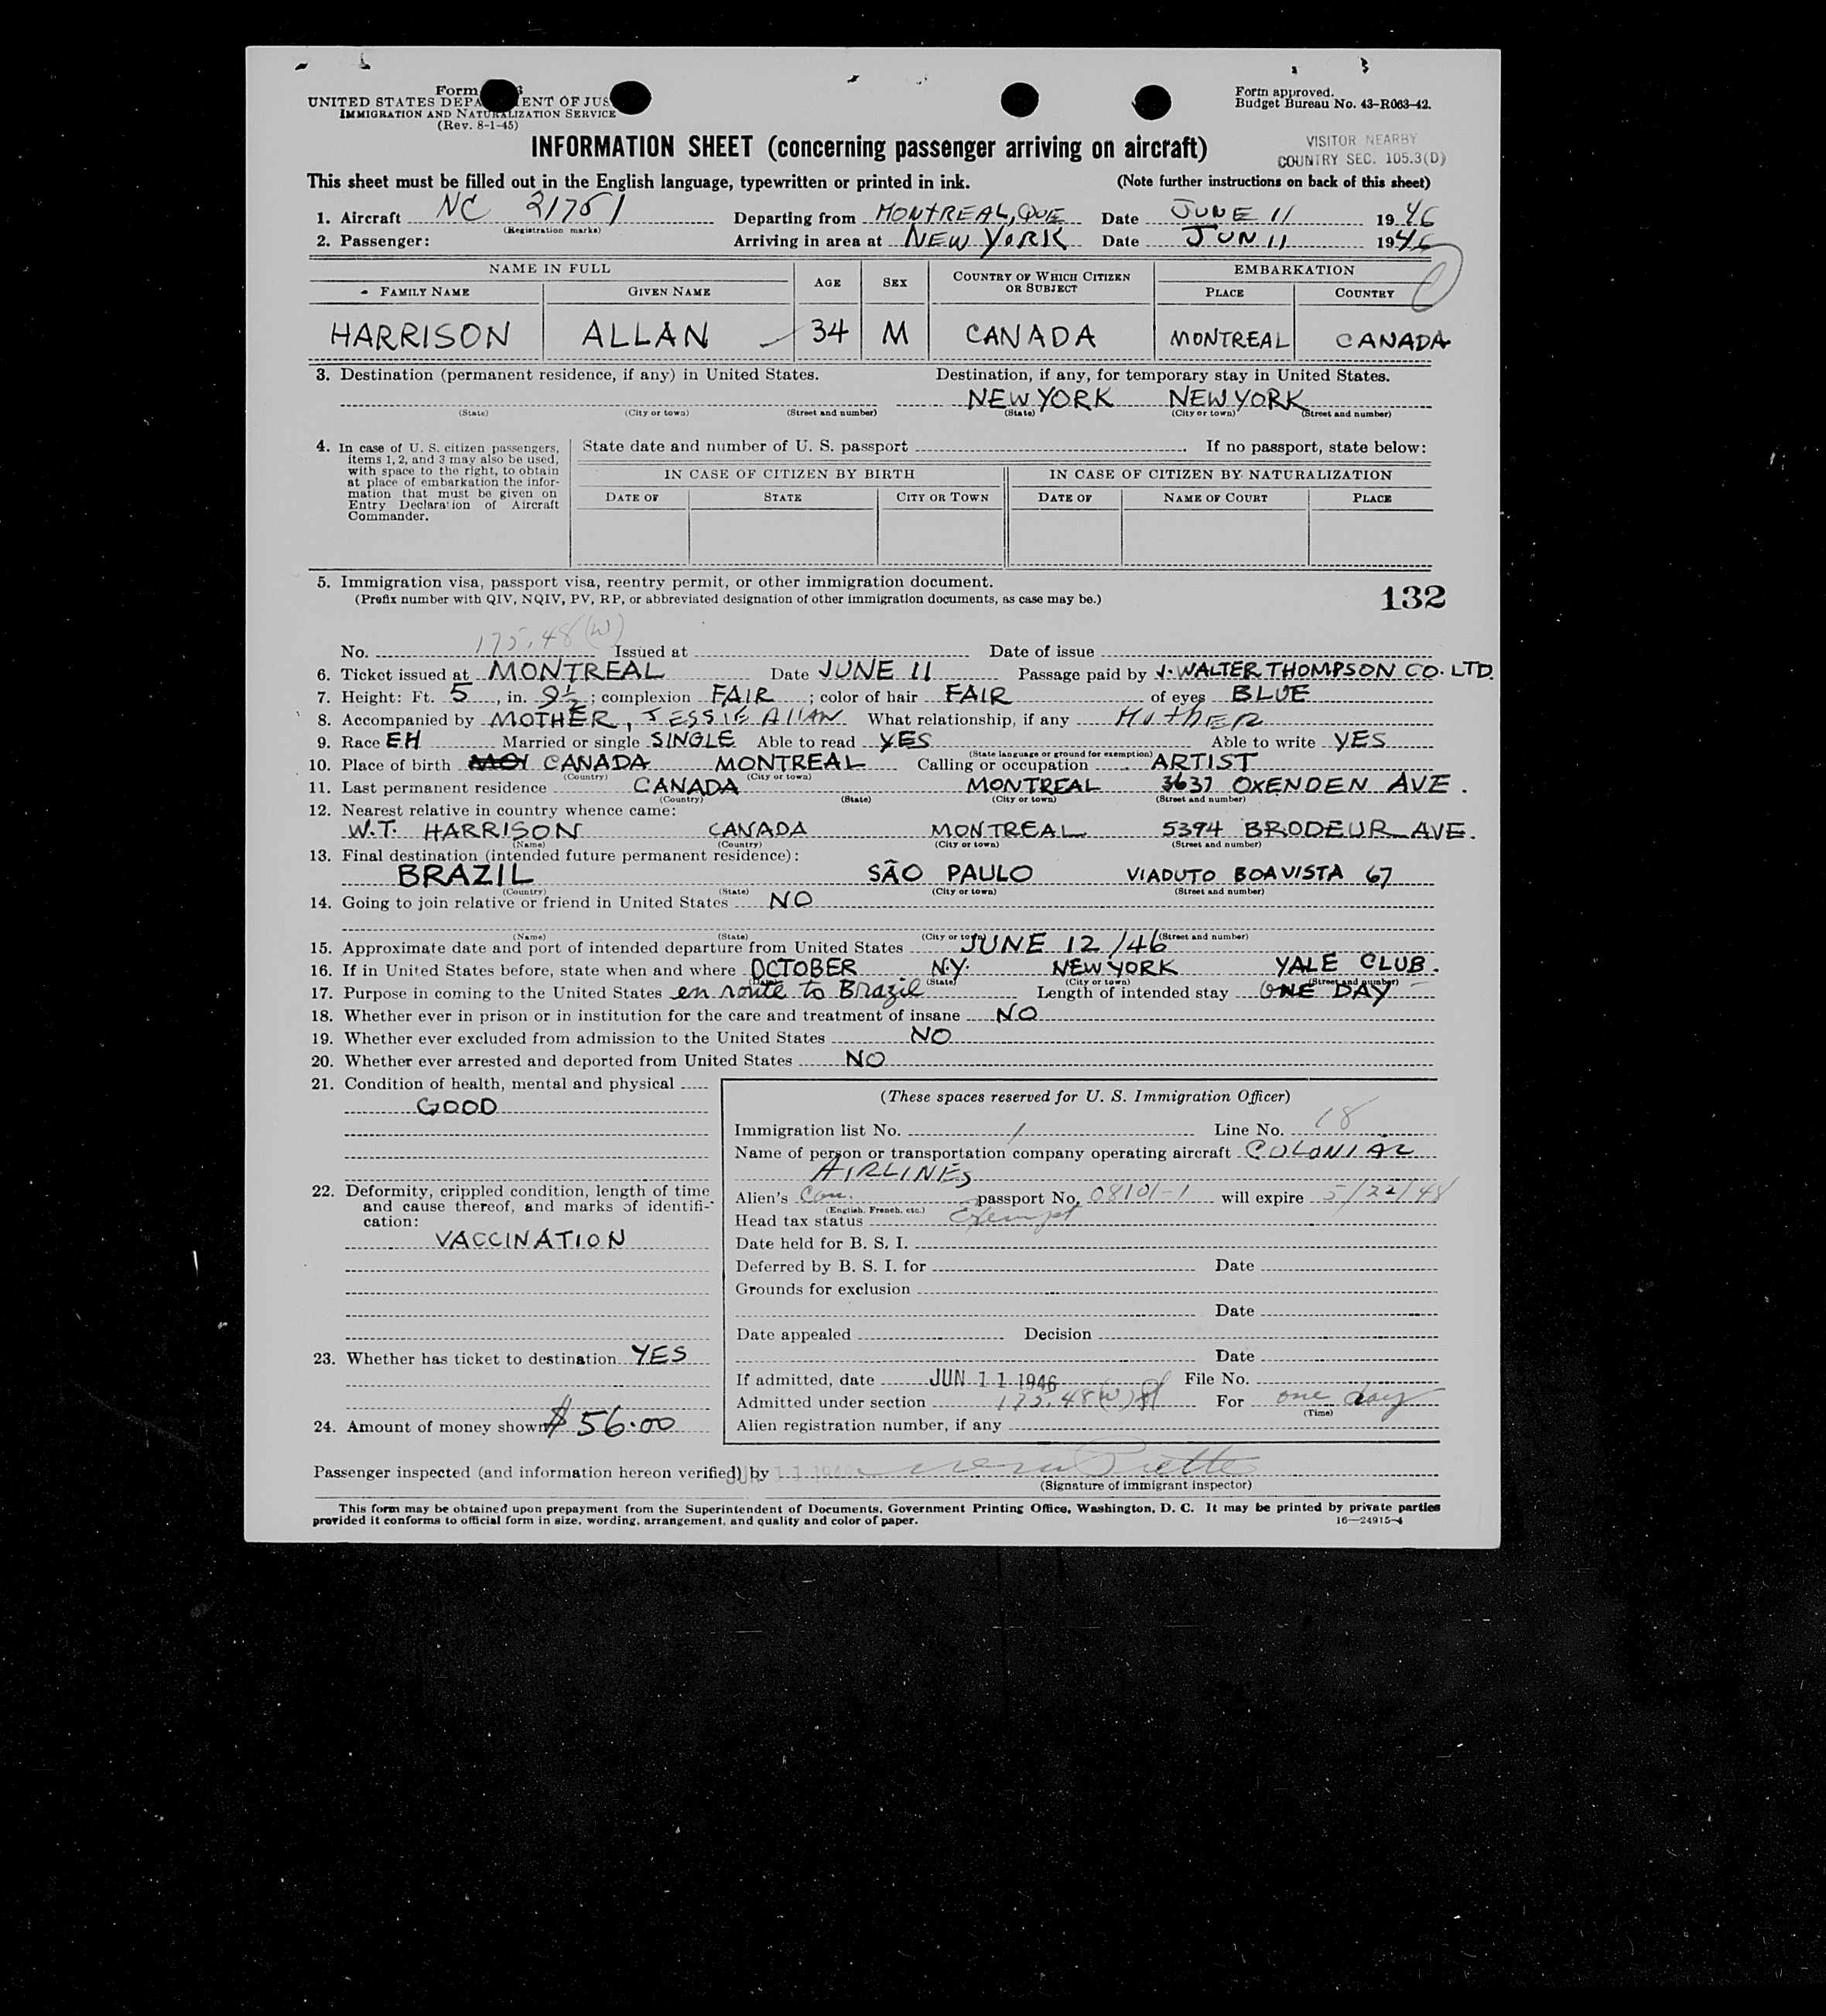 Form
UNITED STATES DEPARTMENT OF JUS
IMMIGRATION AND NATURALIZATION SERVICE
(Rev. 8-1-45)
Form approved.
Budget Bureau No. 43-R063-42.
INFORMATION SHEET (concerning passenger arriving on aircraft)
VISITOR NEARBY
COUNTRY SEC. 105.3(D)
This sheet must be filled out in the English language, typewritten or printed in ink. (Note further instructions on back of this sheet)
1. Aircraft NC 21751 Departing from MONTREAL, QUE Date JUNE 11 1946
(Registration marks)
2. Passenger: Arriving in area at NEW YORK Date JUN 11 1946
NAME IN FULL AGE SEX COUNTRY OF WHICH CITIZEN OR SUBJECT EMBARKATION
FAMILY NAME GIVEN NAME PLACE COUNTRY
HARRISON ALLAN 34 M CANADA MONTREAL CANADA
3. Destination (permanent residence, if any) in United States. Destination, if any, for temporary stay in United States.
NEW YORK NEW YORK
(State) (City or town) (Street and number) (State) (City or town) (Street and number)
4. In case of U. S. citizen passengers, items 1, 2, and 3 may also be used, with space to the right, to obtain at place of embarkation the information that must be given on Entry Declaration of Aircraft Commander.
State date and number of U. S. passport . If no passport, state below:
IN CASE OF CITIZEN BY BIRTH IN CASE OF CITIZEN BY NATURALIZATION
DATE OF STATE CITY OR TOWN DATE OF NAME OF COURT PLACE
5. Immigration visa, passport visa, reentry permit, or other immigration document.
(Prefix number with QIV, NQIV, PV, RP, or abbreviated designation of other immigration documents, as case may be.)
132
No. 175.48(W) Issued at Date of issue
6. Ticket issued at MONTREAL Date JUNE 11 Passage paid by J. WALTER THOMPSON CO. LTD.
7. Height: Ft. 5, in. 9½; complexion FAIR; color of hair FAIR of eyes BLUE
8. Accompanied by MOTHER, JESSIE AllAN What relationship, if any MOTHER
9. Race EH Married or single SINGLE Able to read YES Able to write YES
(State language or ground for exemption)
10. Place of birth CANADA MONTREAL Calling or occupation ARTIST
(Country) (City or town)
11. Last permanent residence CANADA MONTREAL 3637 OXENDEN AVE.
(Country) (State) (City or town) (Street and number)
12. Nearest relative in country whence came:
W.T. HARRISON CANADA MONTREAL 5394 BRODEUR AVE.
(Name) (Country) (City or town) (Street and number)
13. Final destination (intended future permanent residence):
BRAZIL SÃO PAULO VIADUTO BOA VISTA 67
(Country) (State) (City or town) (Street and number)
14. Going to join relative or friend in United States NO
(Name) (State) (City or town) (Street and number)
15. Approximate date and port of intended departure from United States JUNE 12/46
16. If in United States before, state when and where OCTOBER N.Y. NEW YORK YALE CLUB.
(State) (City or town) (Street and number)
17. Purpose in coming to the United States en route to Brazil Length of intended stay ONE DAY
18. Whether ever in prison or in institution for the care and treatment of insane NO
19. Whether ever excluded from admission to the United States NO
20. Whether ever arrested and deported from United States NO
21. Condition of health, mental and physical
GOOD
22. Deformity, crippled condition, length of time and cause thereof, and marks of identification:
VACCINATION
23. Whether has ticket to destination YES
24. Amount of money shown $56.00
(These spaces reserved for U. S. Immigration Officer)
Immigration list No. 1 Line No. 18
Name of person or transportation company operating aircraft COLONIAL
AIRLINES
Alien's Can. passport No. 08101-1 will expire 5/22/48
(English, French, etc.)
Head tax status Exempt
Date held for B. S. I.
Deferred by B. S. I. for Date
Grounds for exclusion
Date
Date appealed Decision
Date
If admitted, date JUN 11 1946 File No.
Admitted under section 175.48(W) For one day
(Time)
Alien registration number, if any
Passenger inspected (and information hereon verified) by JUN 11 1946
(Signature of immigrant inspector)
This form may be obtained upon prepayment from the Superintendent of Documents, Government Printing Office, Washington, D. C. It may be printed by private parties
provided it conforms to official form in size, wording, arrangement, and quality and color of paper. 16—24915-4